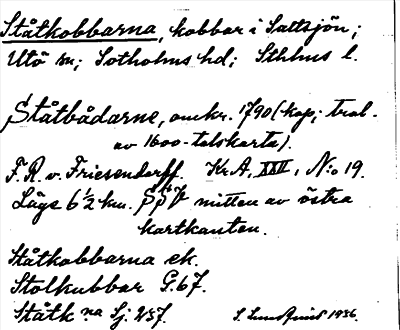 Ståtkobbarna, kobbar i Saltsjön;
Utö sn; Sotholms hd; Sthlms l.
Ståtbådarne, omkr. 1790 (kop; trol.
av 1600-talskarta).
F. R. v. Friesendorff. Kr.A, XXII, N:o 19.
Läge 6½ km. SSV mitten av östra
kartkanten.
Ståtkobbarna ek.
Stolkubbar G. 67.
Ståtk na Sj. 257.
S. Lundquist 1936.